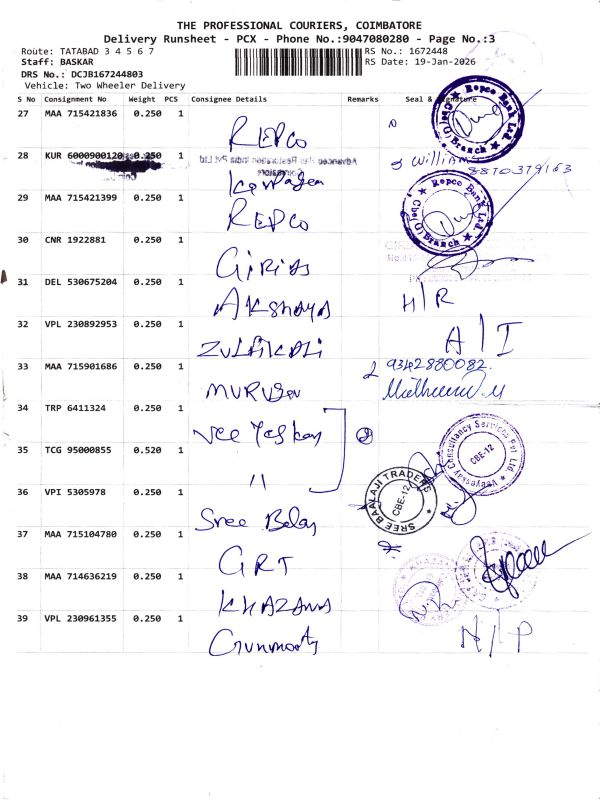 THE PROFESSIONAL COURIERS, COIMBATORE
Delivery Runsheet - PCX - Phone No.:9047080280 - Page No.:3
Route: TATABAD 3 4 5 6 7
RS No.: 1672448
Staff: BASKAR
RS Date: 19-Jan-2026
DRS No.: DCJB167244803
Vehicle: Two Wheeler Delivery
S No Consignment No Weight PCS Consignee Details Remarks Seal & Signature
27 MAA 715421836 0.250 1 REPCO
Repco Bank Ltd.
Cbe(O) Branch
28 KUR 6000900120 0.250 1
William
8870379163
29 MAA 715421399 0.250 1 REPCO
Repco Bank Ltd.
Cbe(O) Branch
30 CNR 1922881 0.250 1 Girias
31 DEL 530675204 0.250 1 Akshaya H/R
32 VPL 230892953 0.250 1 ZULFIKALI A/I
33 MAA 715901686 0.250 1 MURUGAN 9342880082.
34 TRP 6411324 0.250 1 Vee Yes Kay 2
35 TCG 95000855 0.520 1 11
Veeyessay Consultancy Services Pvt Ltd.
CBE-12
36 VPI 5305978 0.250 1 Sree Balaj
SREE BAALAJI TRADERS
CBE-12
37 MAA 715104780 0.250 1 GRT
38 MAA 714636219 0.250 1 KHAZANA
39 VPL 230961355 0.250 1 Gunmoorty N/P